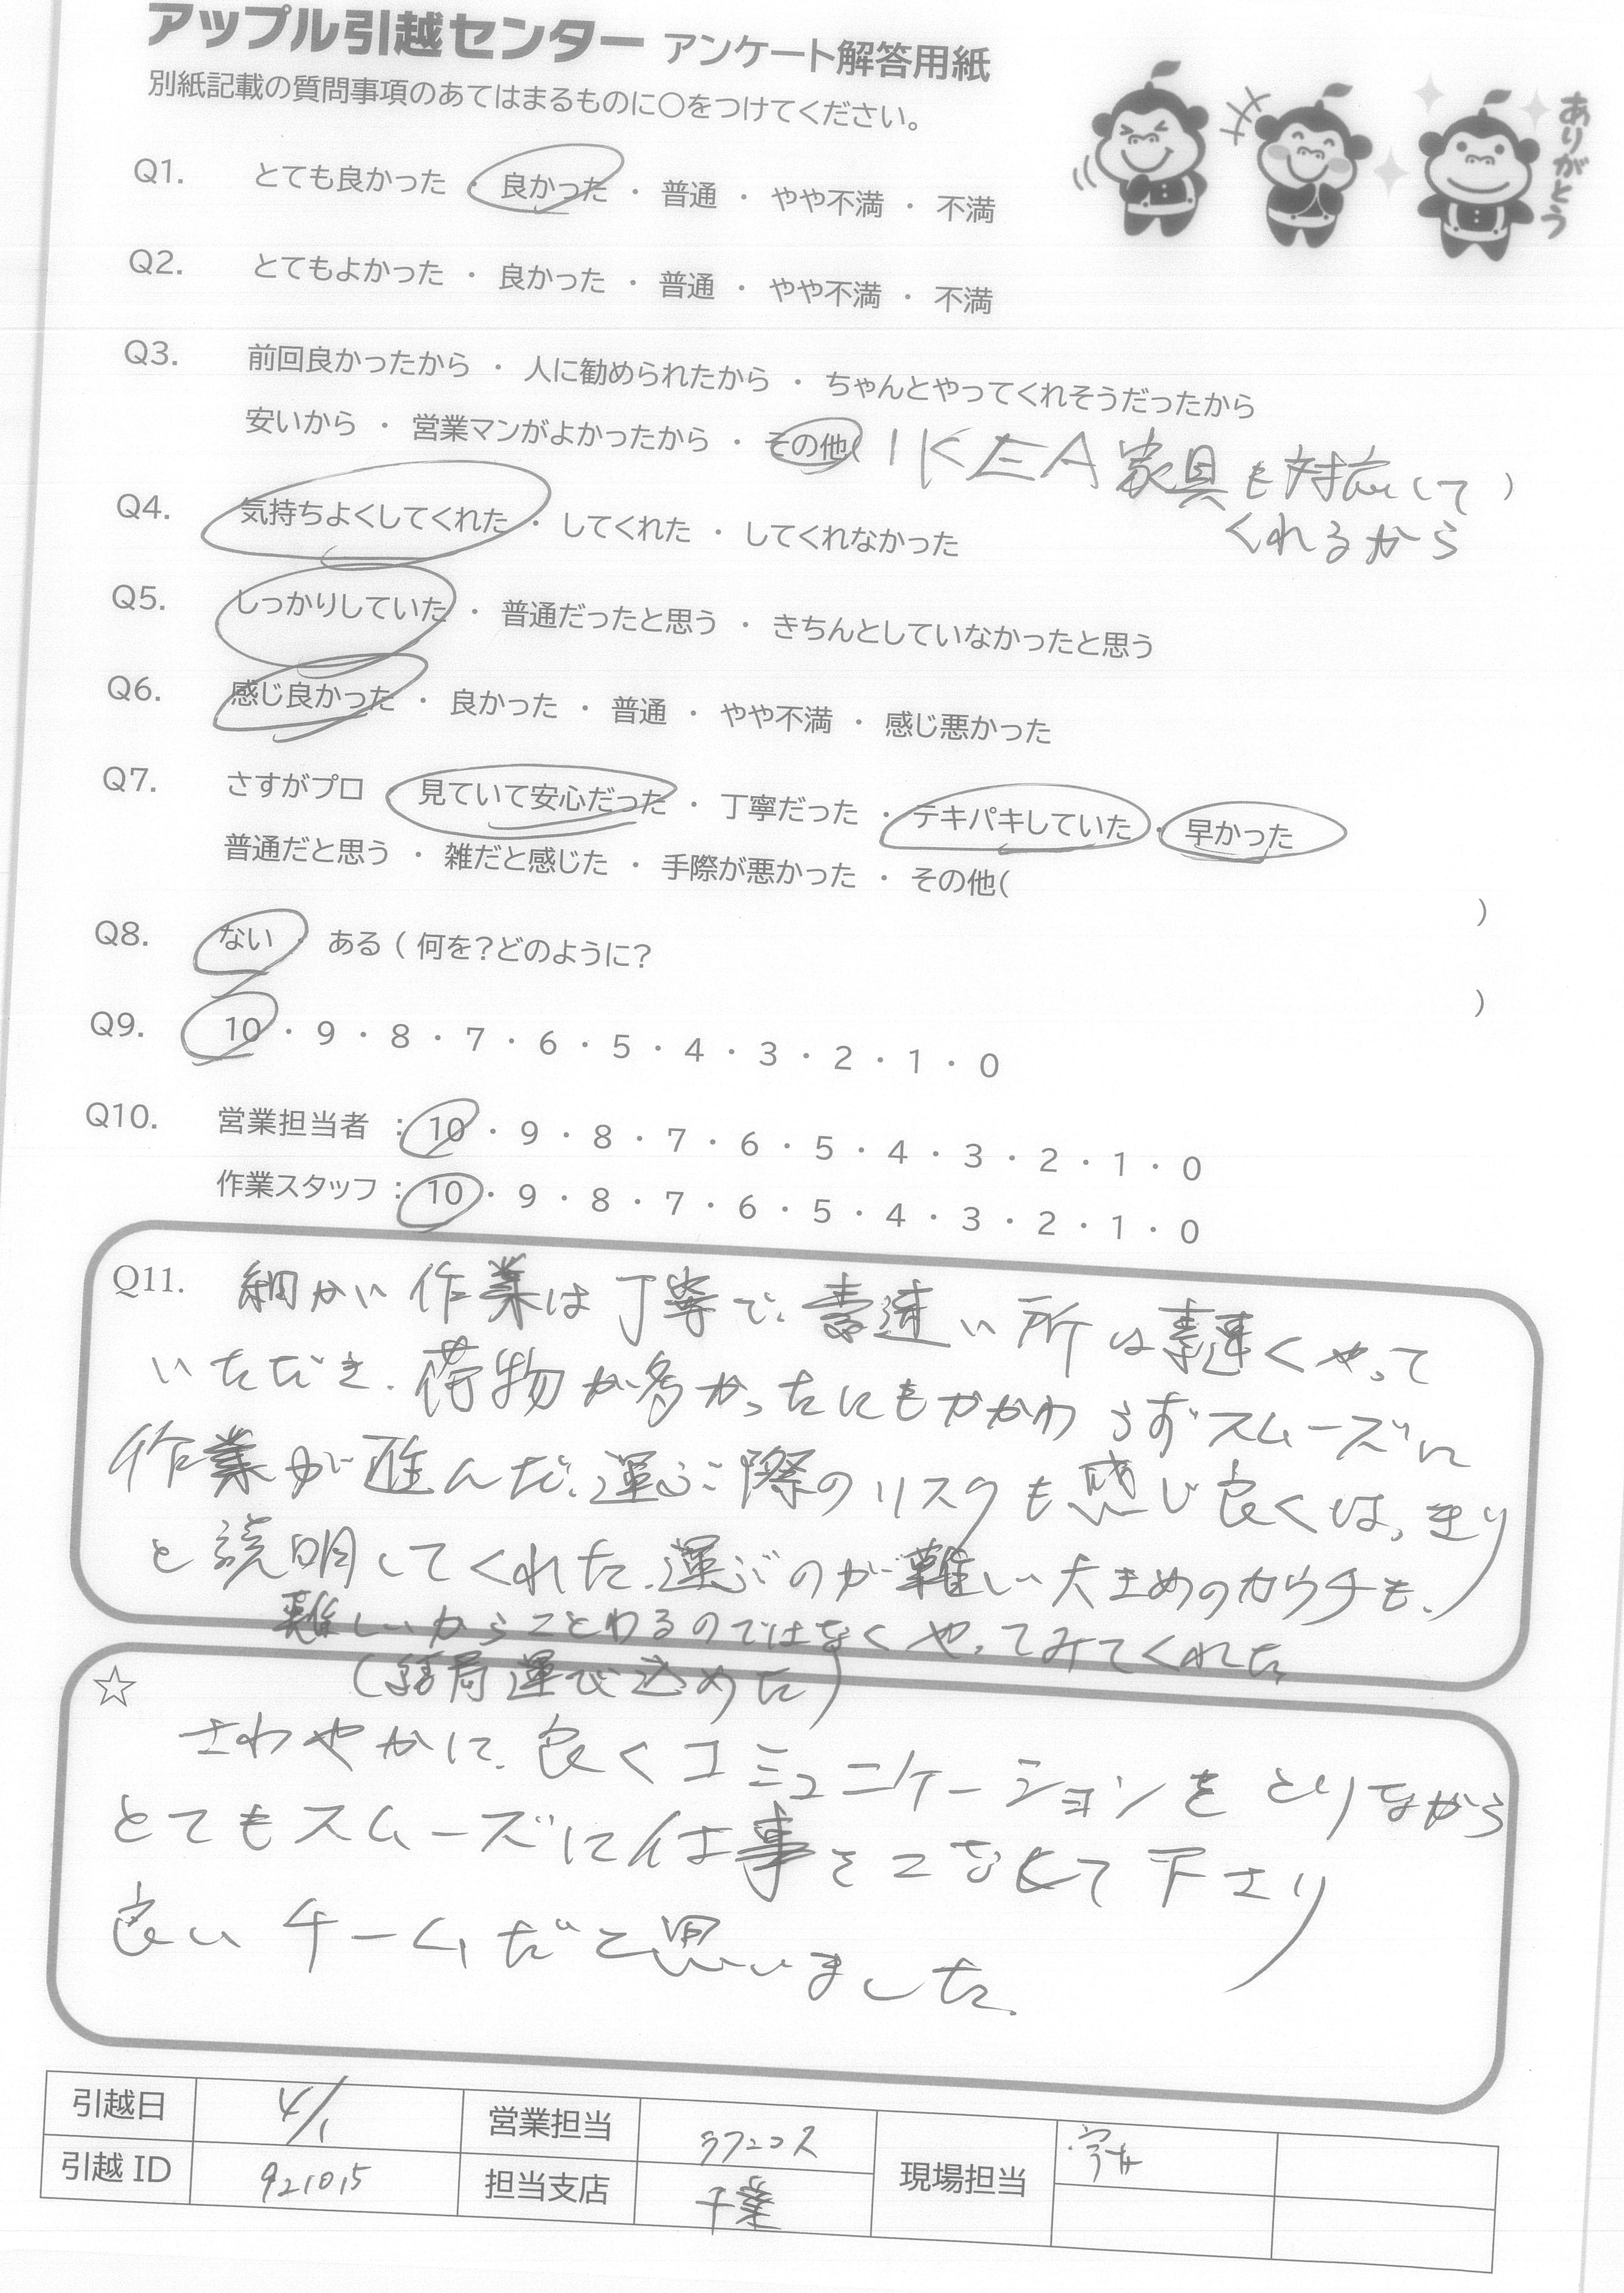 アップル引越センター アンケート解答用紙
別紙記載の質問事項のあてはまるものに〇をつけてください。
ありがとう
Q1. とても良かった ・ 良かった ・ 普通 ・ やや不満 ・ 不満
Q2. とてもよかった ・ 良かった ・ 普通 ・ やや不満 ・ 不満
Q3. 前回良かったから ・ 人に勧められたから ・ ちゃんとやってくれそうだったから
安いから ・ 営業マンがよかったから ・ その他( IKEA家具も対応して )
くれるから
Q4. 気持ちよくしてくれた ・ してくれた ・ してくれなかった
Q5. しっかりしていた ・ 普通だったと思う ・ きちんとしていなかったと思う
Q6. 感じ良かった ・ 良かった ・ 普通 ・ やや不満 ・ 感じ悪かった
Q7. さすがプロ 見ていて安心だった ・ 丁寧だった ・ テキパキしていた ・ 早かった
普通だと思う ・ 雑だと感じた ・ 手際が悪かった ・ その他( )
Q8. ない ・ ある ( 何を?どのように? )
Q9. 10 ・ 9 ・ 8 ・ 7 ・ 6 ・ 5 ・ 4 ・ 3 ・ 2 ・ 1 ・ 0
Q10. 営業担当者 : 10 ・ 9 ・ 8 ・ 7 ・ 6 ・ 5 ・ 4 ・ 3 ・ 2 ・ 1 ・ 0
作業スタッフ : 10 ・ 9 ・ 8 ・ 7 ・ 6 ・ 5 ・ 4 ・ 3 ・ 2 ・ 1 ・ 0
Q11. 細かい作業は丁寧で、素速い所は素速くやって
いただき、荷物が多かったにもかかわらずスムーズに
作業が進んだ。運ぶ際のリスクも感じ良くはっきり
と説明してくれた。運ぶのが難しい大きめのカウチも、
難しいからことわるのではなくやってみてくれた
(結局運び込めた)
☆
さわやかに、良くコミュニケーションをとりながら
とてもスムーズに仕事をこなして下さり
良いチームだと思いました。
引越日 4/1 営業担当 現場担当
引越 ID 921015 担当支店 千葉